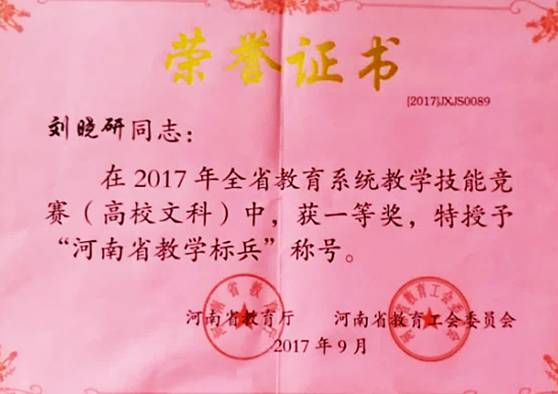 荣誉证书
[2017]JXJS0089
刘晓研同志：
在2017年全省教育系统教学技能竞
赛（高校文科）中，获一等奖，特授予
“河南省教学标兵”称号。
河南省教育厅 河南省教育工会委员会
2017年9月